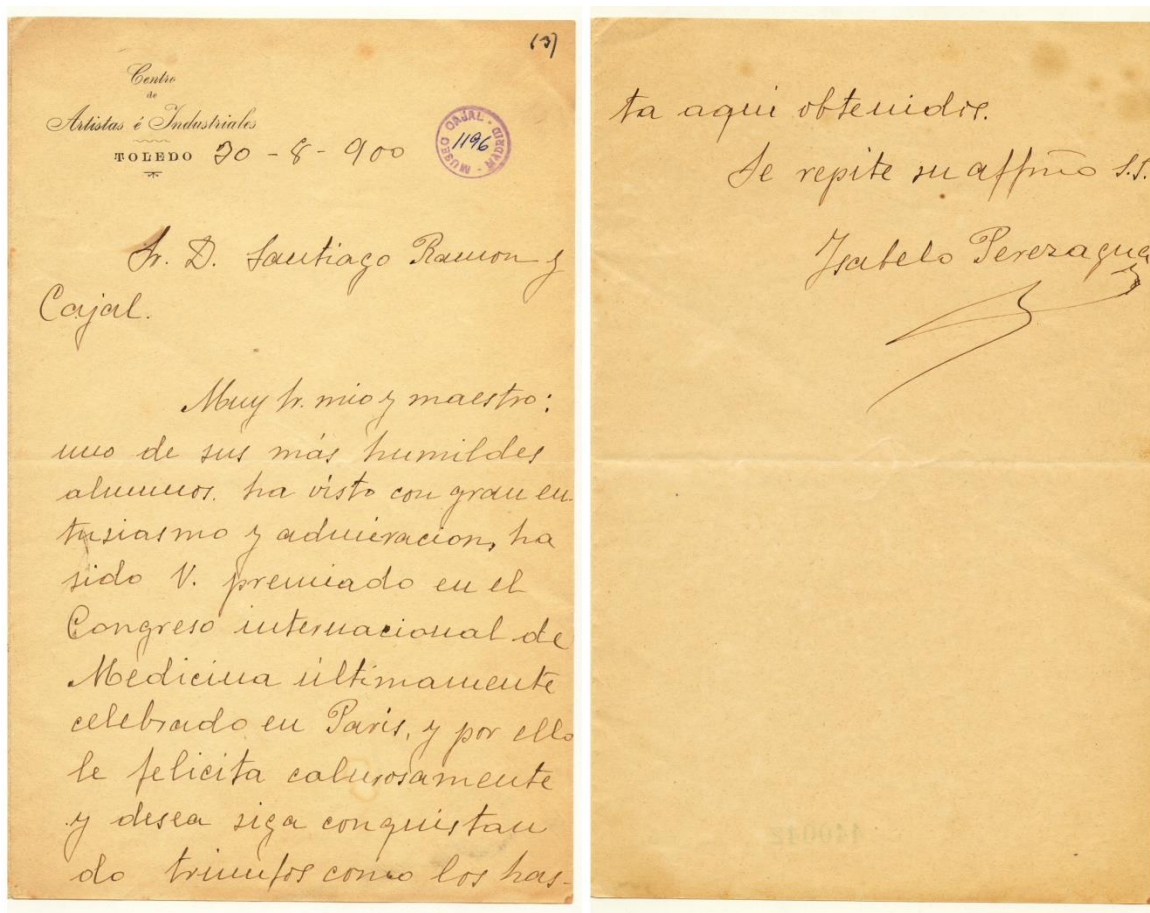 (3)
Centro
de
Artistas é Industriales
TOLEDO 30-8-900
MUSEO CAJAL - MADRID
1196
Sr. D. Santiago Ramon y
Cajal.
Muy Sr. mio y maestro:
uno de sus más humildes
alumnos. ha visto con gran en-
tusiasmo y admiracion, ha
sido V. premiado en el
Congreso internacional de
Medicina últimamente
celebrado en Paris, y por ello
le felicita calurosamente
y desea siga conquistan
do triunfos como los has-
ta aqui obtenidos.
Se repite su affmo S.S.
Isabelo Perezagua